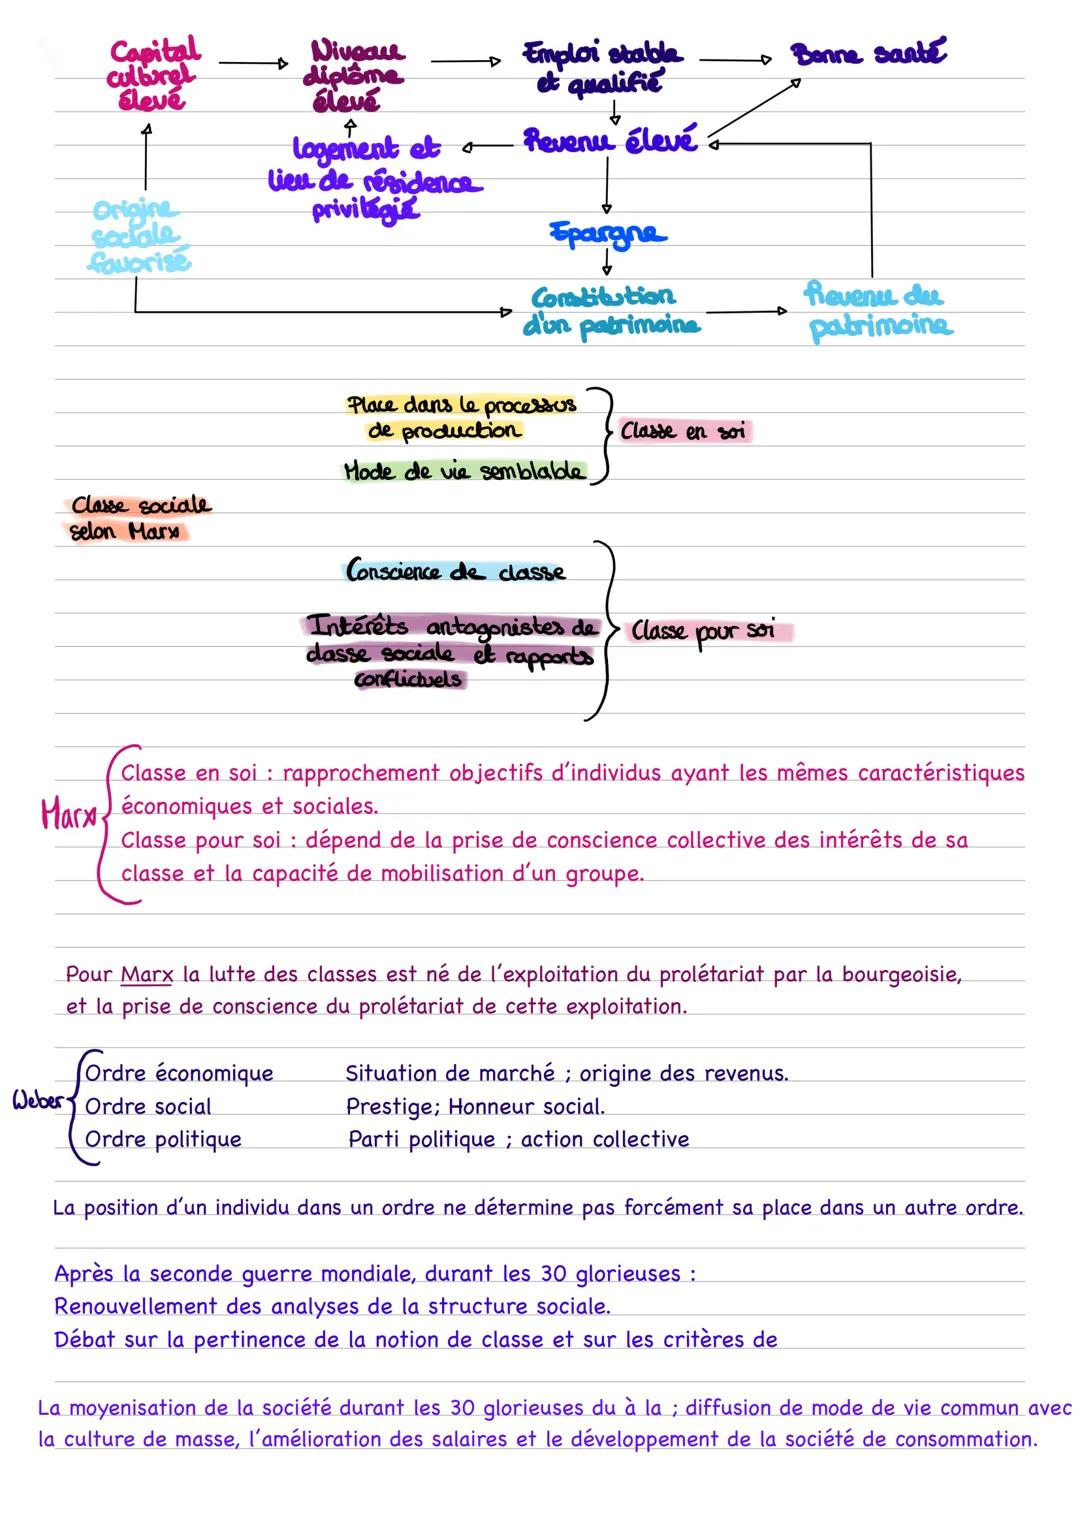 Capital culturel élevé
Niveau diplôme élevé
Emploi stable et qualifié
Bonne santé
Logement et lieu de résidence privilégié
Revenu élevé
Origine sociale favorisé
Epargne
Constitution d'un patrimoine
Revenu du patrimoine
Place dans le processus
de production
Classe en soi
Mode de vie semblable
Classe sociale
selon Marx
Conscience de classe
Intérêts antagonistes de
classe sociale et rapports
conflictuels
Classe pour soi
Marx
Classe en soi : rapprochement objectifs d'individus ayant les mêmes caractéristiques
économiques et sociales.
Classe pour soi : dépend de la prise de conscience collective des intérêts de sa
classe et la capacité de mobilisation d'un groupe.
Pour Marx la lutte des classes est né de l'exploitation du prolétariat par la bourgeoisie,
et la prise de conscience du prolétariat de cette exploitation.
Weber
Ordre économique Situation de marché ; origine des revenus.
Ordre social Prestige; Honneur social.
Ordre politique Parti politique ; action collective
La position d'un individu dans un ordre ne détermine pas forcément sa place dans un autre ordre.
Après la seconde guerre mondiale, durant les 30 glorieuses :
Renouvellement des analyses de la structure sociale.
Débat sur la pertinence de la notion de classe et sur les critères de
La moyenisation de la société durant les 30 glorieuses du à la ; diffusion de mode de vie commun avec
la culture de masse, l'amélioration des salaires et le développement de la société de consommation.